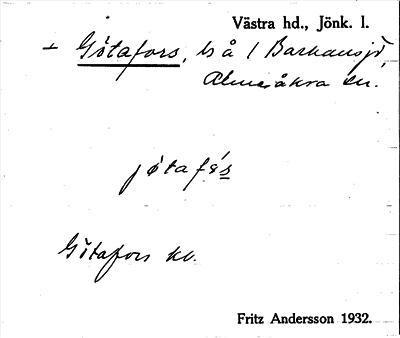 Västra hd., Jönk. l.
± Götafors, ls å / Barkansjö,
Almesåkra sn.
jøtafǿs
Götafors kv.
Fritz Andersson 1932.